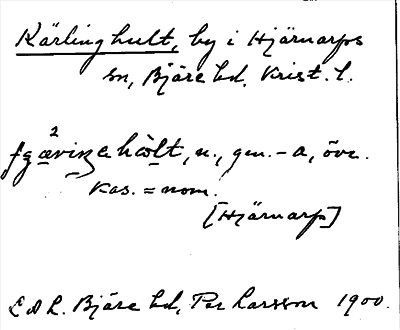 Kärlinghult, by i Hjärnarps
sn, Bjäre hd. Krist. l.
hòlt, n., gen. -a, övr.
kas. = nom.
[Hjärnarp]
Bjäre hd, Per Larsson 1900.